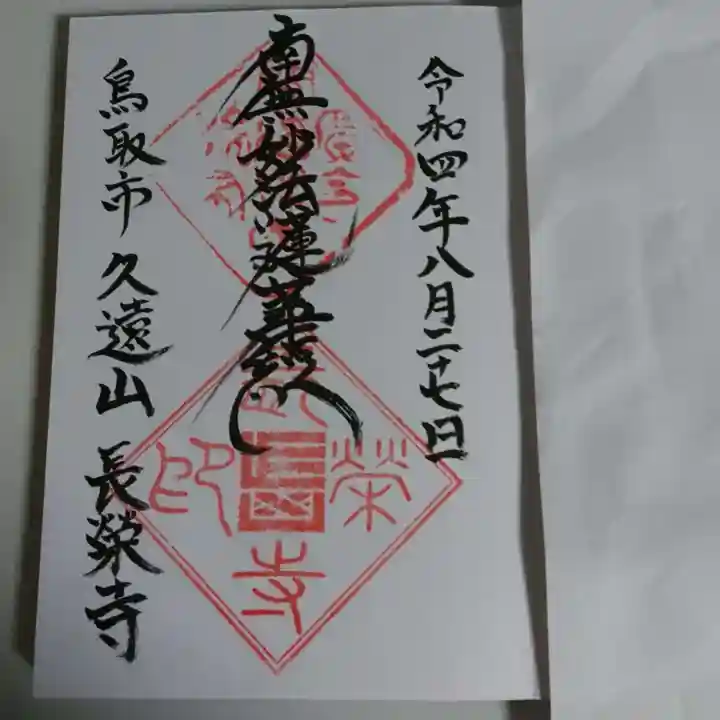 令和四年八月二十七日
南無妙法蓮華経
鳥取市 久遠山 長榮寺
榮
寺
印